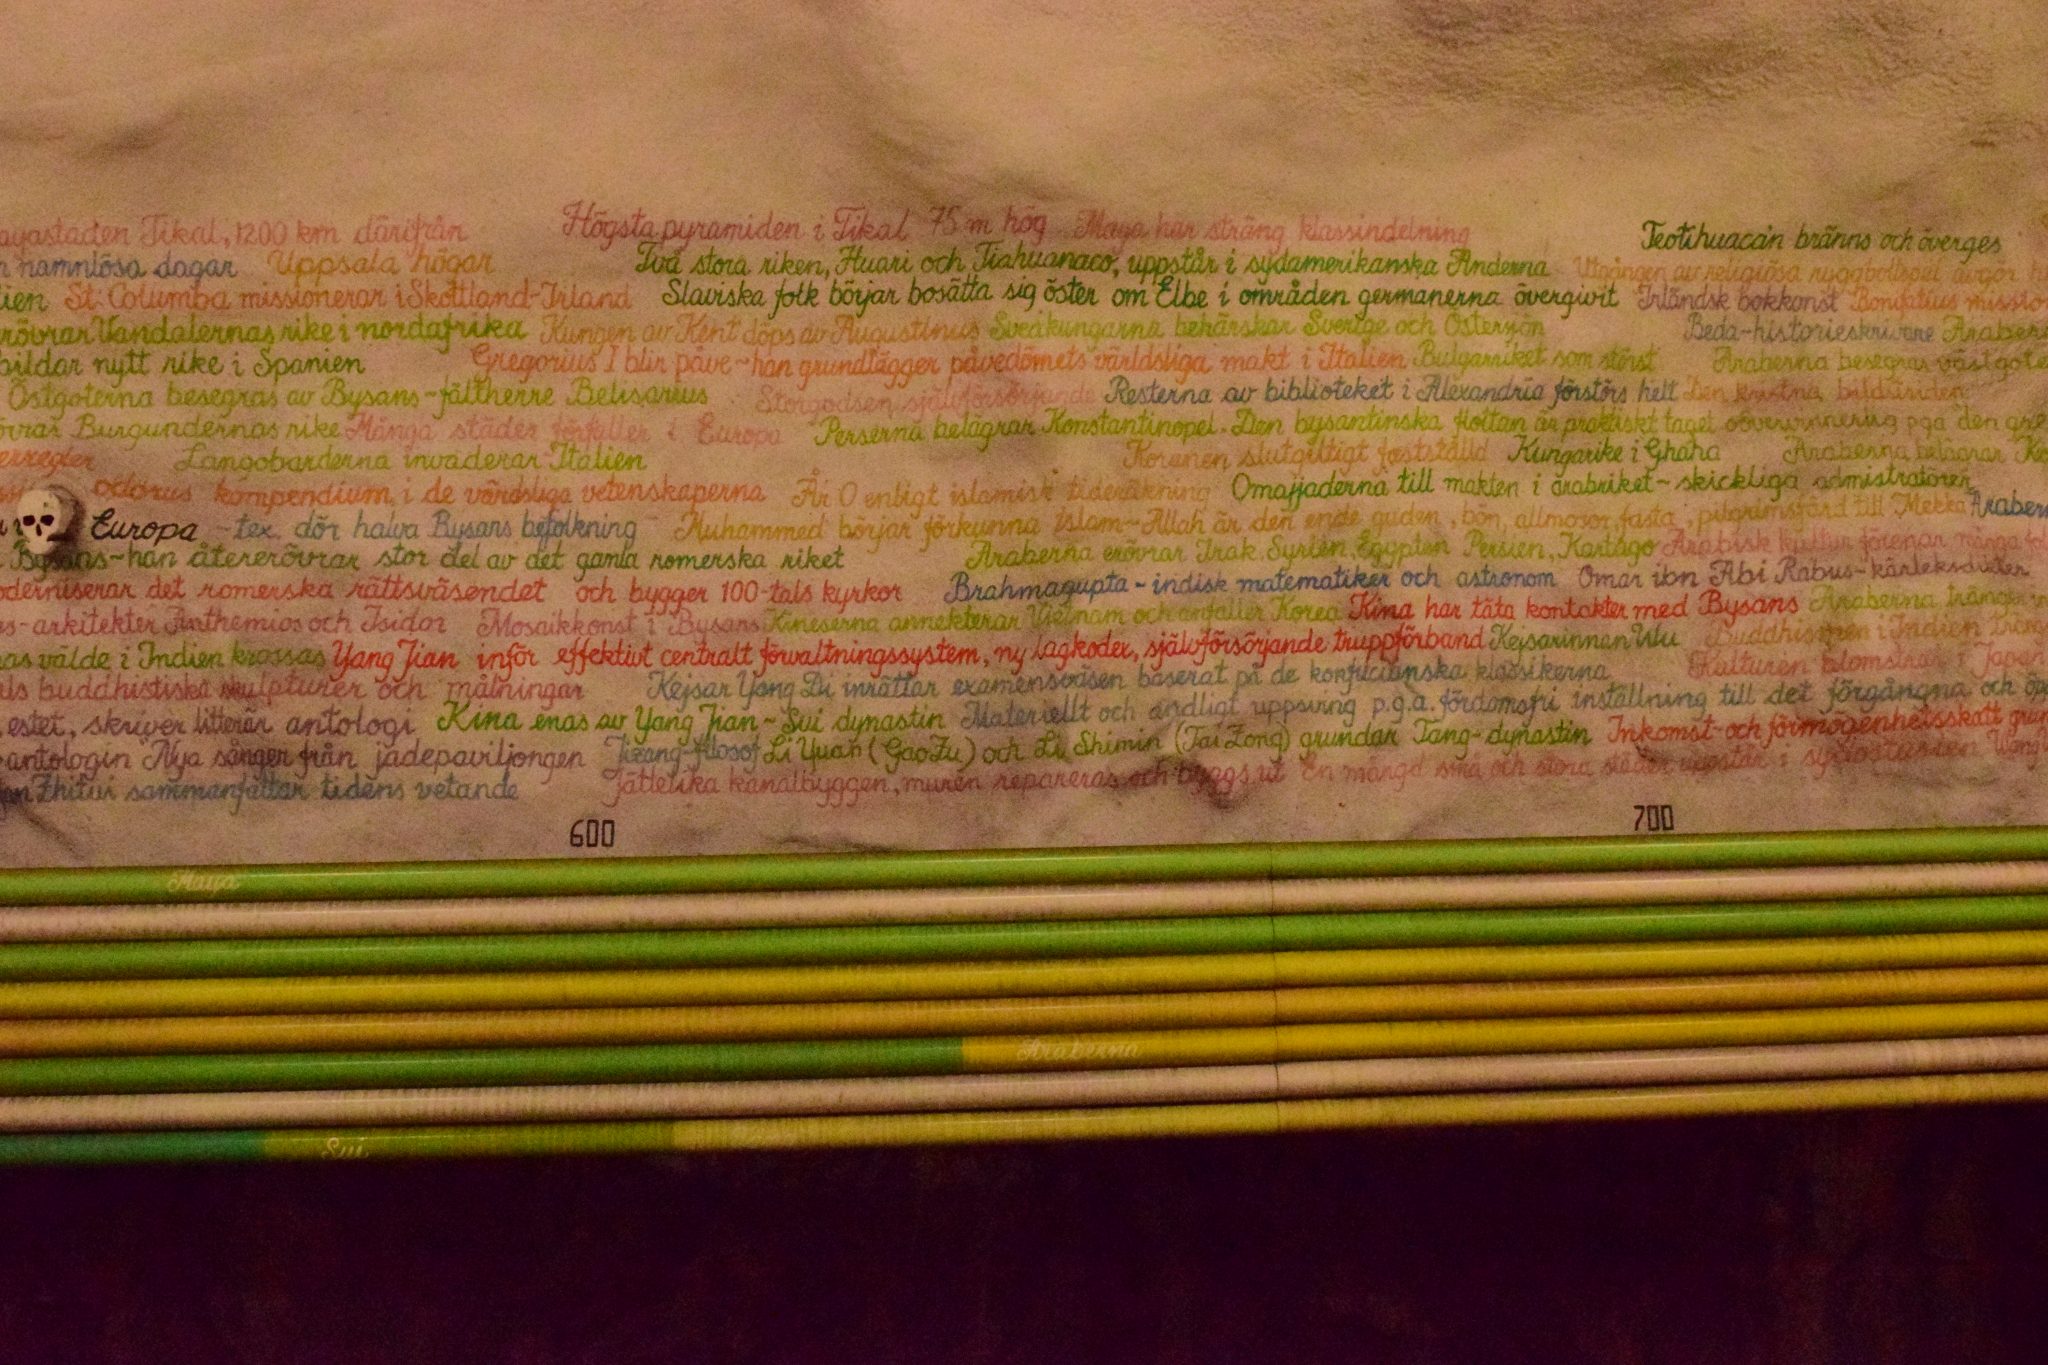 Tikal, 1200 km därifrån Högsta pyramiden i Tikal 75 m hög Maya har sträng klassindelning Teotihuacán bränns och överges
namnlösa dagar Uppsala högar Två stora riken, Huari och Tiahuanaco, uppstår i sydamerikanska Anderna Utgången av religiösa
St. Columba missionerar i Skottland-Irland Slaviska folk börjar bosätta sig öster om Elbe i områden germanerna övergivit Irländsk bokkonst Bonifatius
erövrar Vandalernas rike i nordafrika Kungen av Kent döps av Augustinus Sveakungarna behärskar Sverige och Österjön Beda-historieskrivare
bildar nytt rike i Spanien Gregorius I blir påve~han grundlägger påvedömets världsliga makt i Italien Bulgarriket som störst Araberna besegrar
Östgoterna besegras av Bysans-fältherre Belisarius Storgodsen självförsörjande Resterna av biblioteket i Alexandria förstörs helt Den kristna bildstriden
Burgundernas rike Många städer förfaller i Europa Perserna belägrar Konstantinopel. Den bysantinska flottan är praktiskt taget oövervinnerlig pga den
Langobarderna invaderar Italien Koranen slutgiltigt fastställd Kungarike i Ghana Araberna belägrar
kompendium i de världsliga vetenskaperna År 0 enligt islamisk tideräkning Omajjaderna till makten i arabriket~skickliga admistratörer
Europa - tex. dör halva Bysans befolkning Muhammed börjar förkunna islam~Allah är den ende guden, bön, allmosor, fasta, pilgrimsfärd till Mekka
Bysans~han återerövrar stor del av det gamla romerska riket Araberna erövrar Irak, Syrien, Egypten Persien, Kartago Arabisk kultur förenar många
det romerska rättsväsendet och bygger 100-tals kyrkor Brahmagupta - indisk matematiker och astronom Omar ibn Abi Rabus-kärleksdikter
arkitekter Anthemios och Isidor Mosaikkonst i Bysans Kineserna annekterar Vietnam och anfaller Korea Kina har täta kontakter med Bysans Araberna tränger
välde i Indien krossas Yang Jian inför effektivt centralt förvaltningssystem, ny lagkoder, självförsörjande truppförband Kejsarinnan Wu Buddhismen i Indien
buddhistiska skulpturer och målningar Kejsar Yang Di inrättar examensväsen baserat på de konfucianska klassikerna Kulturen blomstrar i Japan
skriver litterär antologi Kina enas av Yang Jian~Sui dynastin Materiellt och andligt uppsving p.g.a. fördomsfri inställning till det förgångna och
antologin Nya sånger från jadepaviljongen Jizang-filosof Li Yuan (Gao Zu) och Li Shimin (Tai Zong) grundar Tang-dynastin Inkomst-och förmögenhetsskatt
Zhitui sammanfattar tidens vetande Jättelika kanalbyggen, muren repareras och byggs ut En mängd små och stora städer uppstår i sydostasien
600
700
Maya
Araberna
Sui